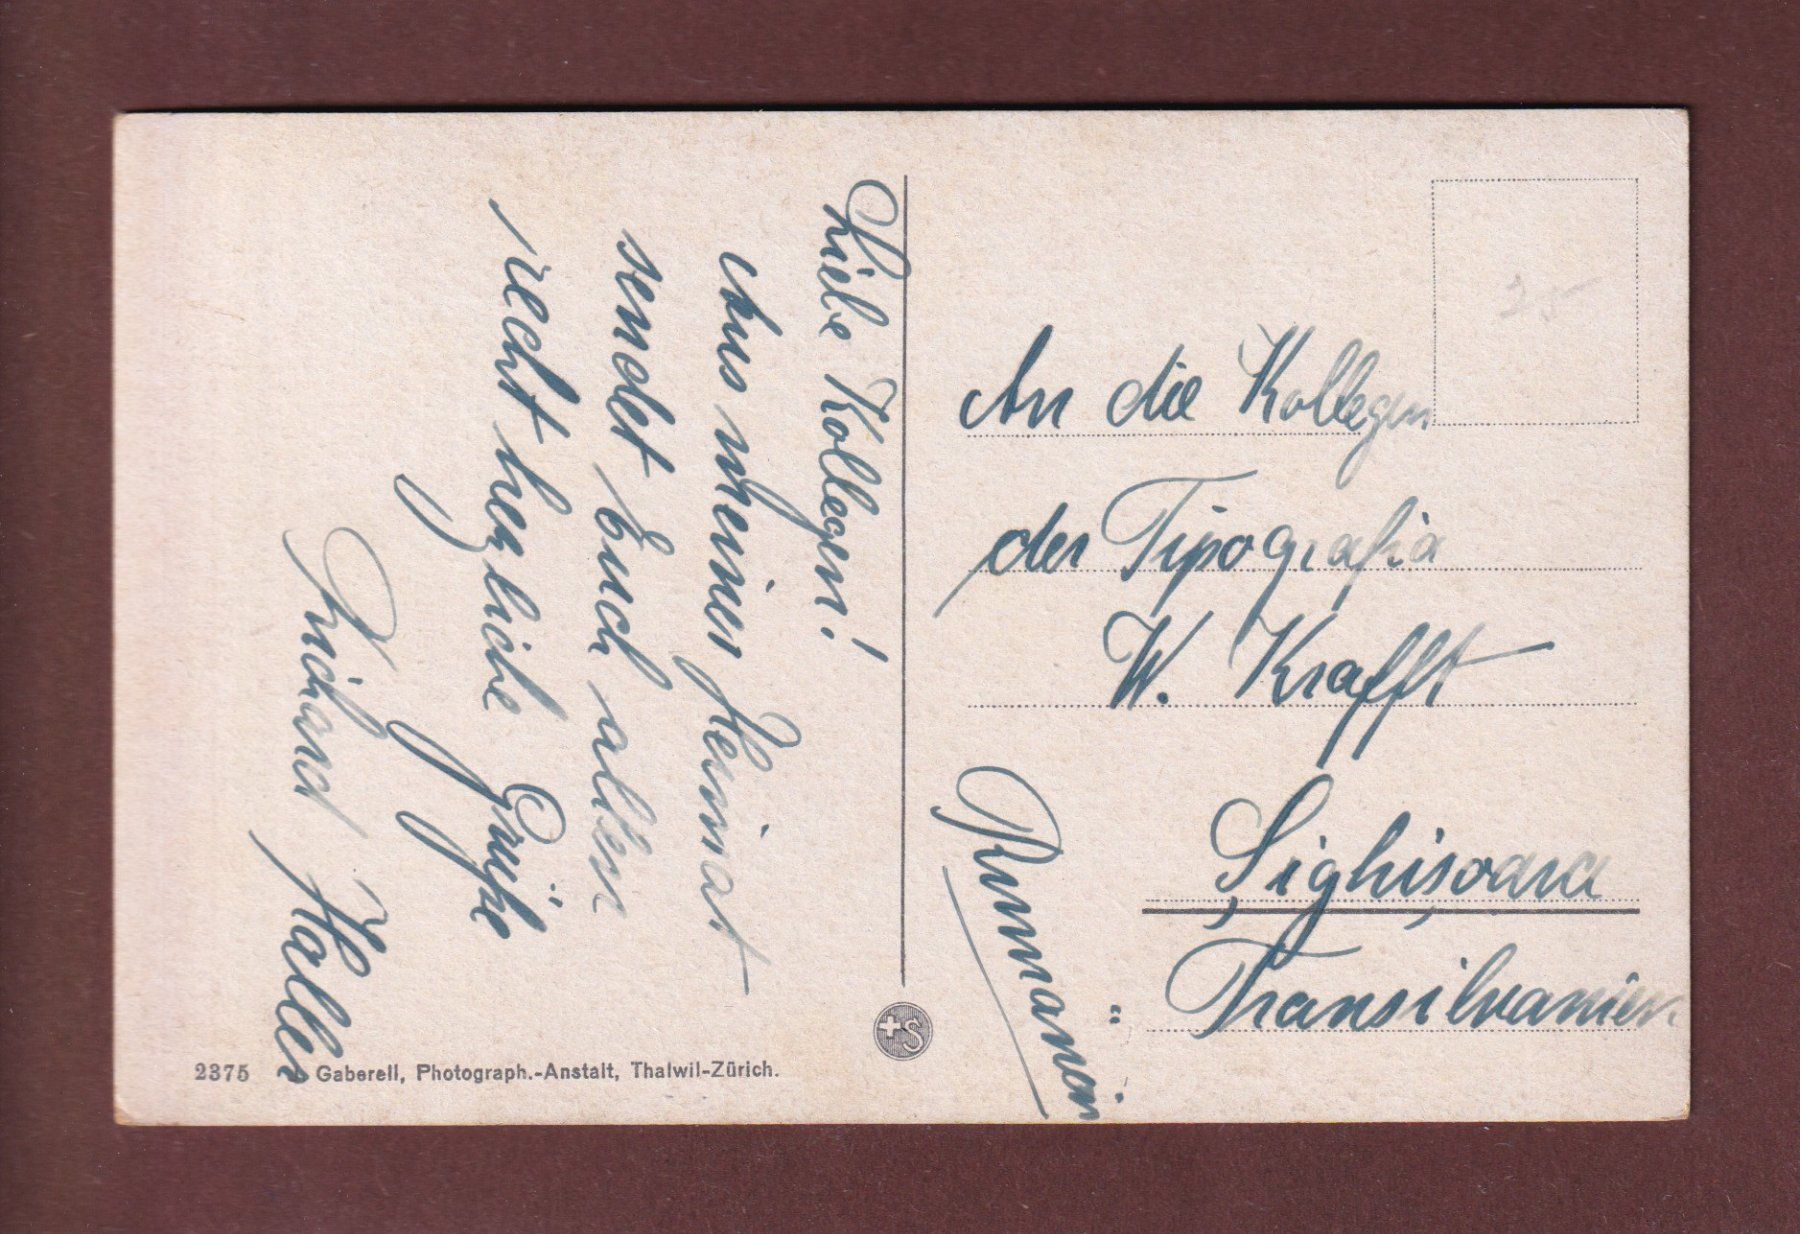 Liebe Kollegen!
Aus meiner Heimat
sendet Euch allen
recht herzliche Grüße
Richard Haller
An die Kollegen
der Tipografia
W. Krafft
Sighișoara
Transilvanien
Rumänien
25
+S
2375 J. Gaberell, Photograph.-Anstalt, Thalwil-Zürich.